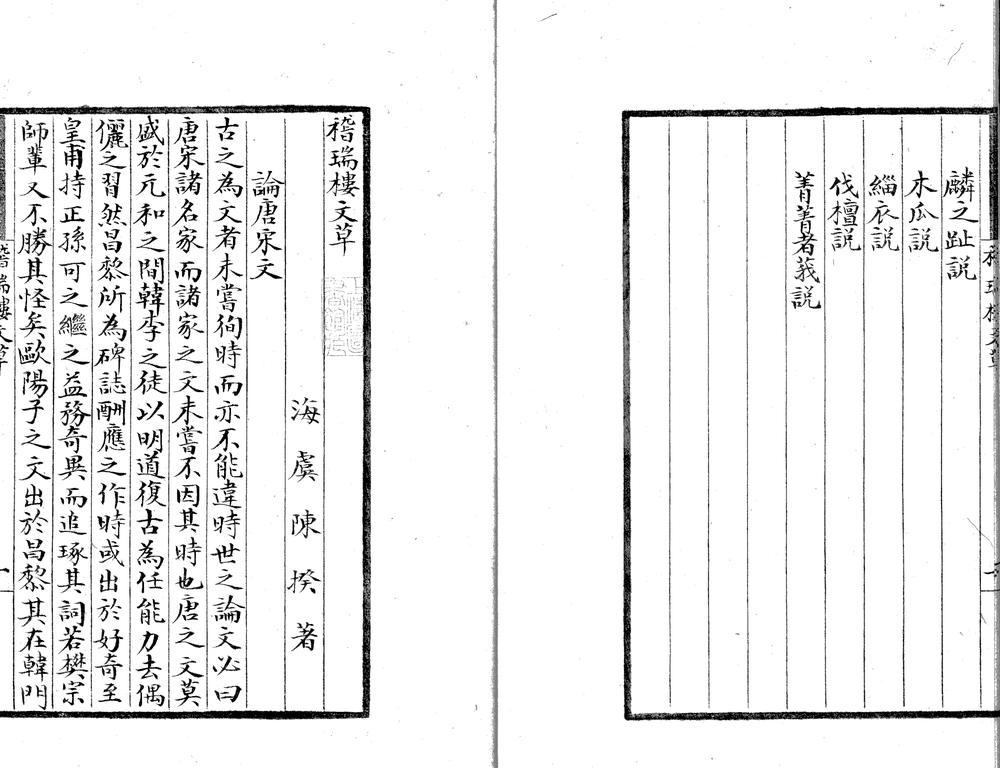 麟之趾説
木瓜説
緇衣説
伐檀説
菁菁者莪説
稽瑞樓文草
海虞陳揆著
論唐宋文
古之為文者未嘗徇時而亦不能違時世之論文必曰
唐宋諸名家而諸家之文未嘗不因其時也唐之文莫
盛於元和之間韓李之徒以明道復古為任能力去偶
儷之習然昌黎所為碑誌酬應之作時或出於好奇至
皇甫持正孫可之繼之益務奇異而追琢其詞若樊宗
師輩又不勝其怪矣歐陽子之文出於昌黎其在韓門
稽瑞樓文草
一